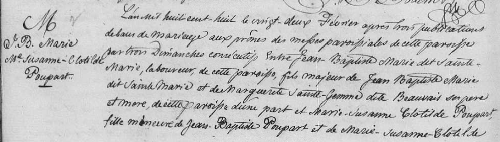 M
J. B. Marie
Me. Susanne-Clotilde
Poupart.
L'an mil huit cent huit le vingt deux Février après trois publications
de bans de mariage aux prônes de messes paroissiales de cette paroisse
par trois Dimanches consécutifs Entre Jean Baptiste Marie dit Sainte
Marie, laboureur, de cette paroisse, fils majeur de Jean Baptiste Marie
dit Sainte Marie et de Marguerite Sainte-Gemme dite Beauvais ses pere
et mere, de cette paroisse d'une part et Marie-Susanne Clotilde Poupart,
fille mineure de Jean-Baptiste Poupart et de Marie-Susanne-Clotilde